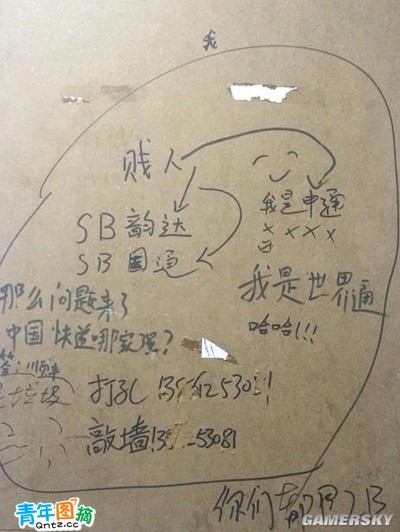 我
贱人
我是申通
SB 韵达
SB 国通
我是世界通
哈哈!!!
那么问题来了
中国快递哪家强?
答:顺丰
是垃圾
打孔
敲墙
你们都
青年图摘
Qntz.cc
GAMERSKY